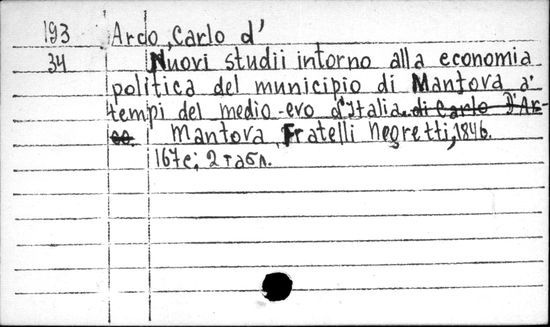 193 Arco, Carlo d'
34 Nuovi studii intorno alla economia
politica del municipio di Mantova a'
tempi del medio-evo d'Italia. di Carlo D'Ar-
co. Mantova, Fratelli Negretti, 1846.
167 c; 2 табл.